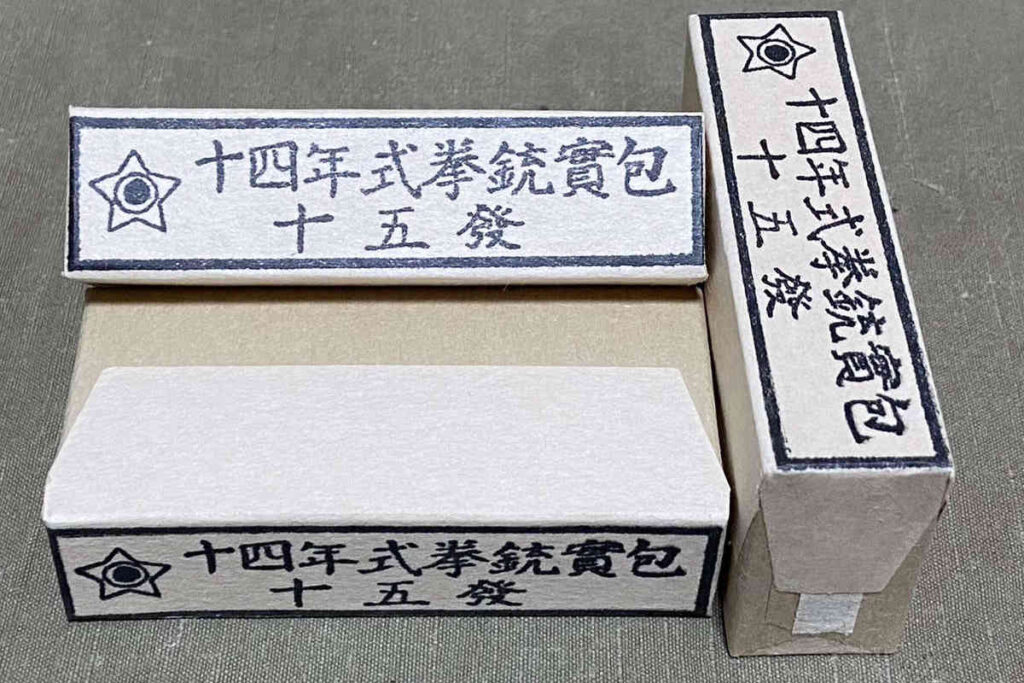 十四年式拳銃實包
十五發
十四年式拳銃實包
十五發
十四年式拳銃實包
十五發